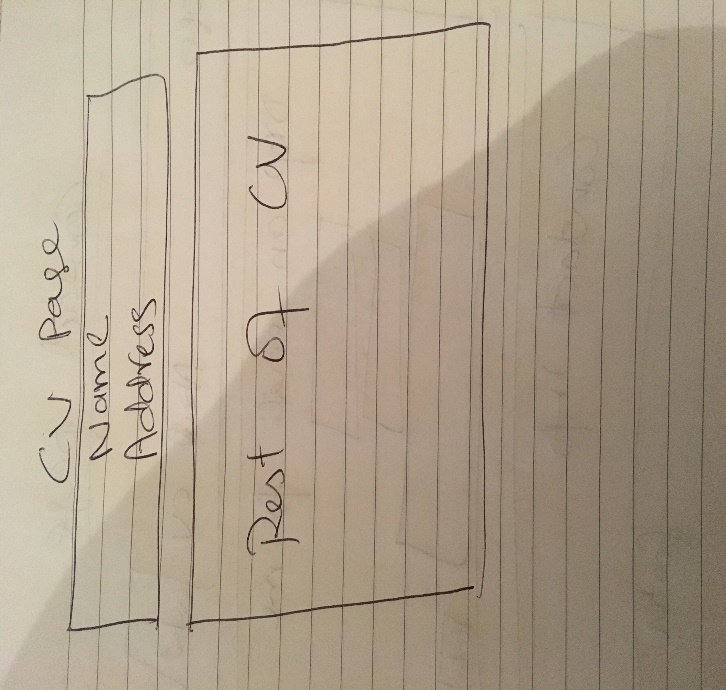 CV Page
Name
Address
Rest of CV